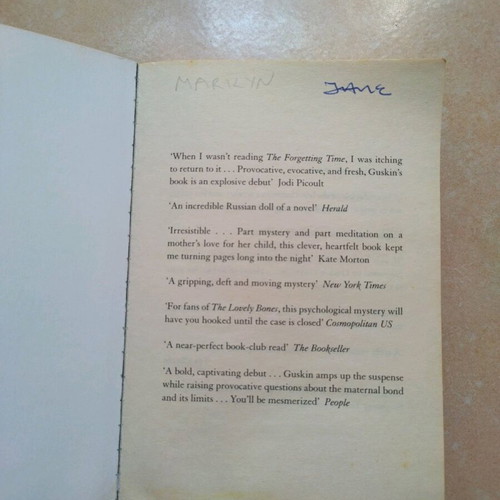 MARILYN JANE
'When I wasn't reading The Forgetting Time, I was itching
to return to it . . . Provocative, evocative, and fresh, Guskin's
book is an explosive debut' Jodi Picoult
'An incredible Russian doll of a novel' Herald
'Irresistible . . . Part mystery and part meditation on a
mother's love for her child, this clever, heartfelt book kept
me turning pages long into the night' Kate Morton
'A gripping, deft and moving mystery' New York Times
'For fans of The Lovely Bones, this psychological mystery will
have you hooked until the case is closed' Cosmopolitan US
'A near-perfect book-club read' The Bookseller
'A bold, captivating debut . . . Guskin amps up the suspense
while raising provocative questions about the maternal bond
and its limits . . . You'll be mesmerized' People